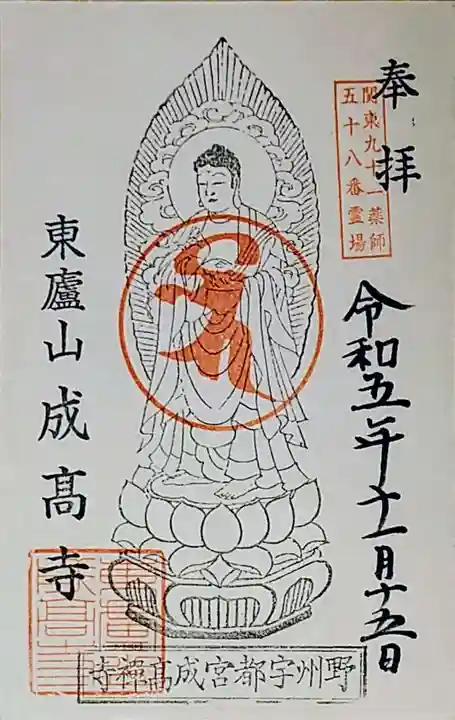 奉拝
関東九十一薬師
五十八番霊場
令和五年十一月十五日
東廬山成髙寺
野州宇都宮成髙禅寺